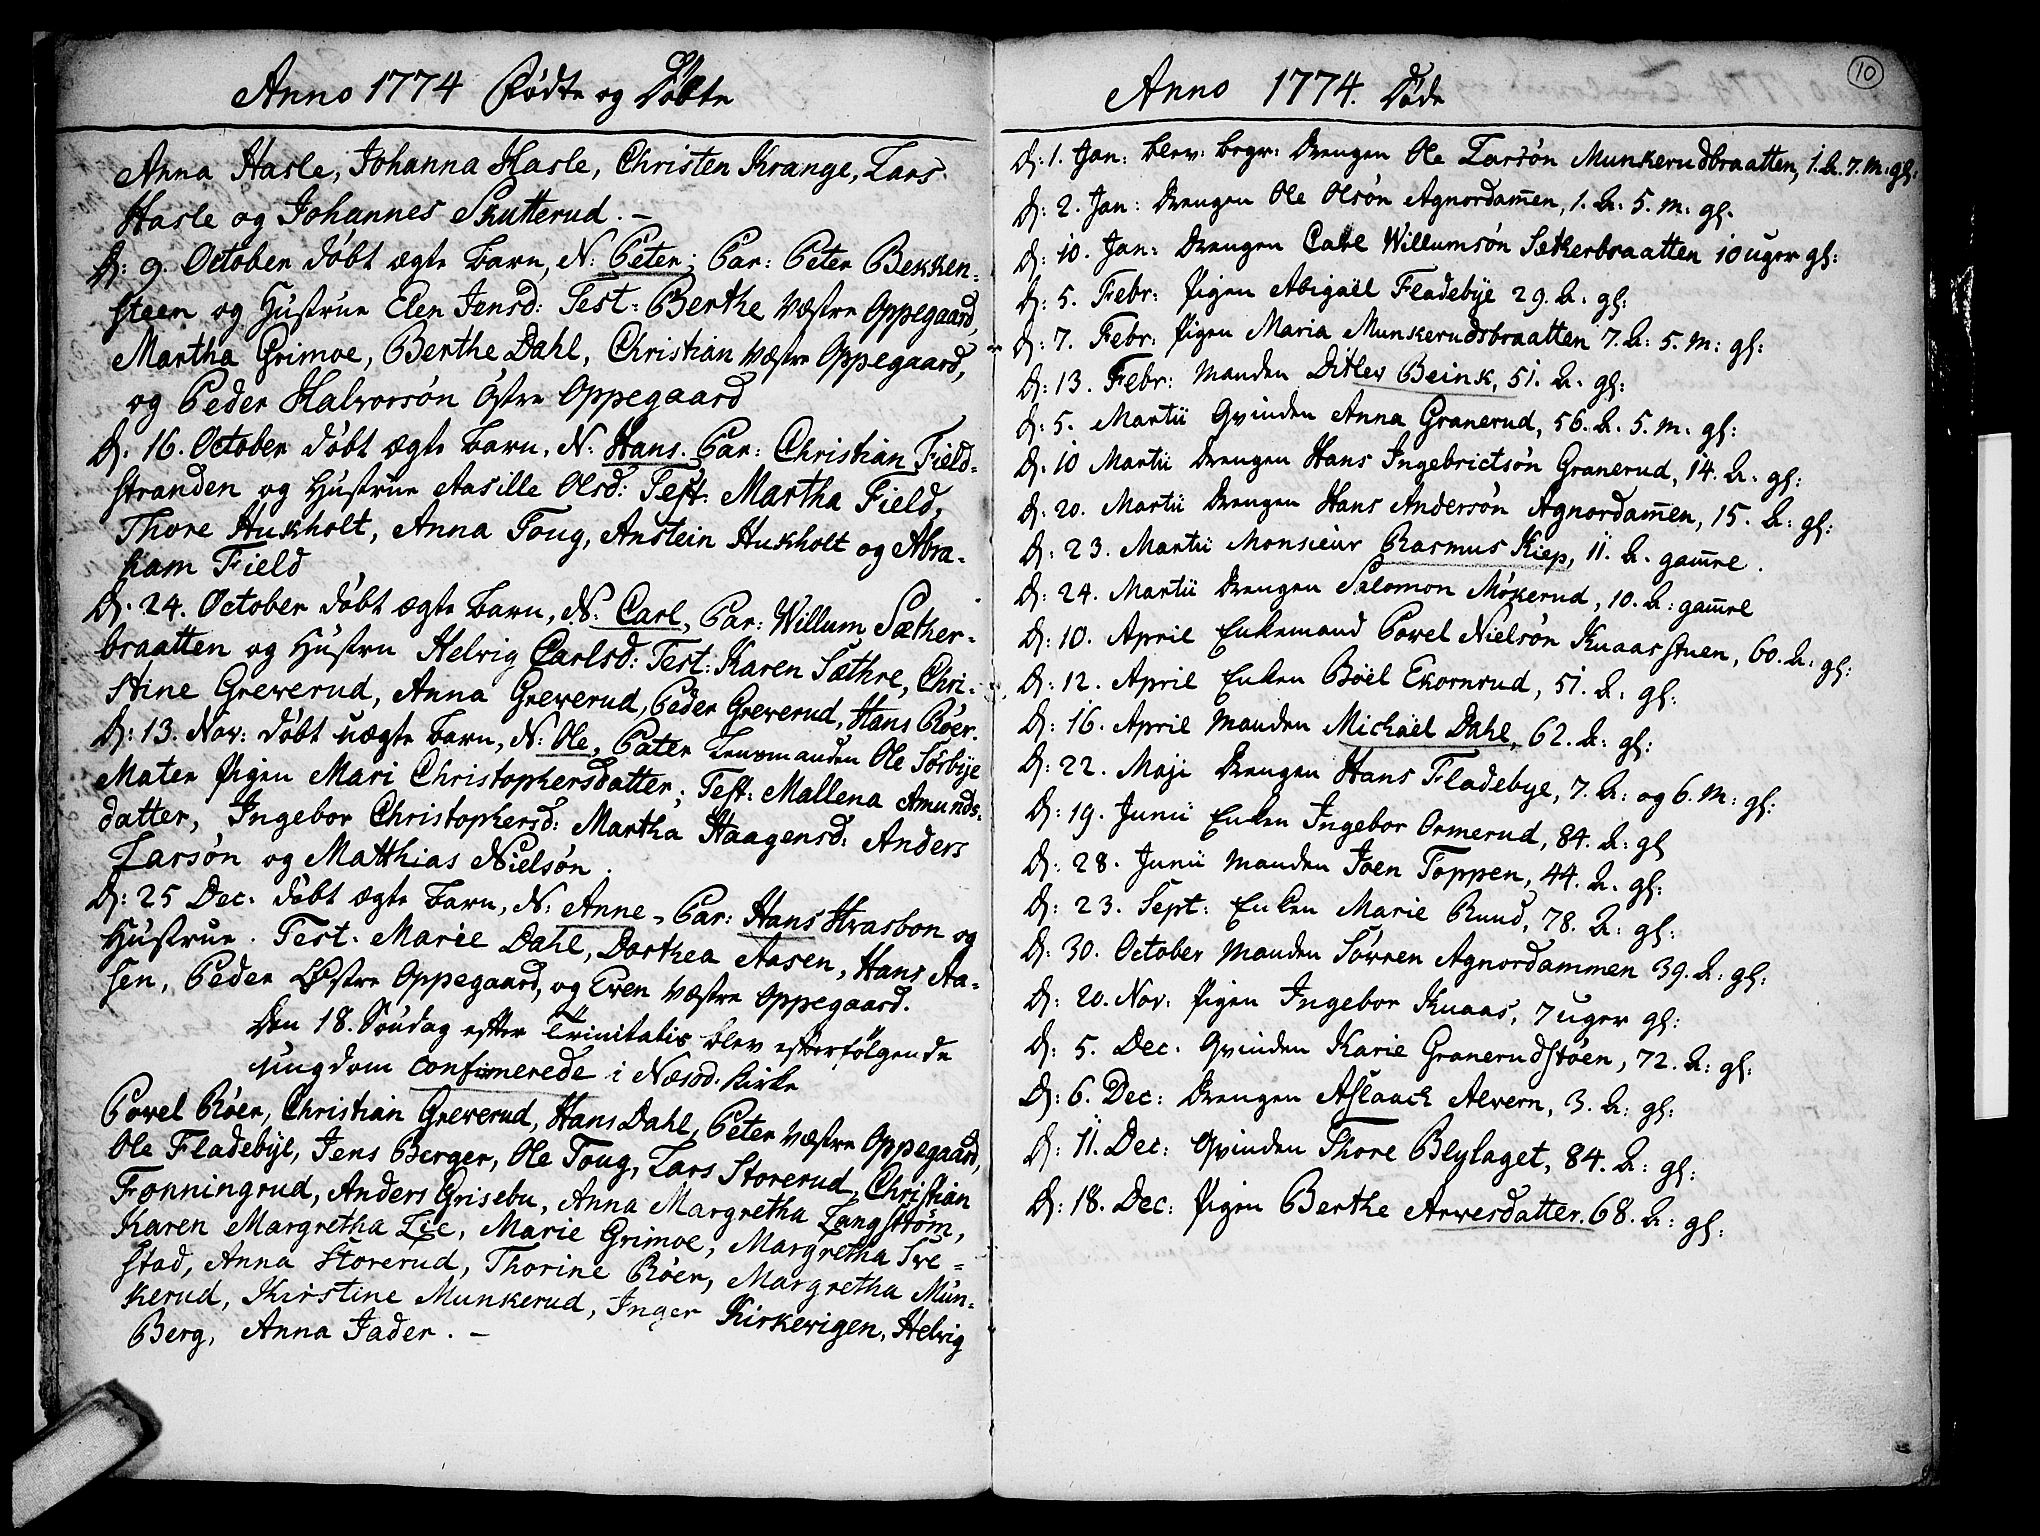 Anno 1774 Födte og Döbte
Anna Hasle, Johanna Hasle, Christen Krange, Lars
Hasle og Johannes Skutterud. –
D: 9. October döbt ægte Barn, N: Peter; Par: Peter Bekken-
steen og Hustrue Elen Jensd: Test: Berthe Wæstre Oppegaard,
Martha Grimoe, Berthe Dahl, Christian Wæstre Oppegaard,
og Peder Halvorsön Östre Oppegaard
D. 16. October döbt ægte Barn, N: Hans. Par: Christian Field-
stranden og Hustrue Aasille Olsd: Test. Martha Field,
Thore Hukholt, Anna Toug, Anstein Hukholt og Abra-
ham Field
D. 24. October döbt ægte Barn, N: Carl, Par: Willum Sæther-
braatten og Hustru Helvig Carlsd: Test: Karen Sæthre, Chri-
stine Greverud, Anna Greverud, Peder Greverud, Hans Röer.
D: 13. Nov: döbt uægte Barn, N: Ole, Pater Lensmanden Ole Sörbÿe
Mater Pigen Mari Christophersdatter; Test: Mallena Amunds-
datter, Ingebor Christophersd: Martha Haagensd: Anders
Larsön og Matthias Nielsön.
D: 25 Dec. döbt ægte Barn, N: Anne, Par: Hans Hvasbon og
Hustrue. Test. Marie Dahl, Dorthea Aasen, Hans Aa-
sen, Peder Østre Oppegaard, og Even Wæstre Oppegaard.
Den 18. Söndag efter Trinitatis blev efterfölgende
ungdom confirmerede i Næsod. Kirke
Povel Röer, Christian Greverud, Hans Dahl, Peter Wæstre Oppegaard,
Ole Fladebÿe, Jens Berger, Ole Toug, Lars Storerud, Christian
Fonningrud, Anders Grisebu, Anna Margretha Langström,
Karen Margretha Lie, Marie Grimoe, Margretha Sve-
stad, Anna Storerud, Thorine Röer, Margretha Mun-
kerud, Kirstine Munkerud, Inger Kirkevigen, Helvig
Berg, Anna Jader. –
10
Anno 1774. Döde
D: 1. Jan: blev: begr: Drengen Ole Larsön Munkerudbraatten, 1. A. 7. M: gl:
D: 2. Jan: Drengen Ole Olsön Agnordam̄en, 1. A: 5. M: gl.
D: 10. Jan: Drengen Carl Willumsön Setherbraatten 10 uger gl:
D: 5. Febr: Pigen Abigaël Fladebÿe 29. A: gl:
D: 7. Febr: Pigen Maria Munkerudsbraatten 7. A: 5. M: gl:
D: 13. Febr: Manden Ditlev Beink, 51. A. gl:
D: 5. Martii Qvinden Anna Granerud, 56. A. 5. M. gl:
D: 10 Martii Drengen Hans Ingebrictsön Granerud, 14. A. gl:
D: 20. Martii Drengen Hans Andersön Agnordam̄en, 15. A: gl:
D: 23. Martii Monsieur Rasmus Kiep, 11. A. gam̄el.
D: 24. Martii Drengen Salomon Mökerud, 10. A: gam̄el
D: 10. April Enkemand Povel Nielsön Knaasstuen, 60. A: gl:
D: 12. April Enken Böel Ekornrud, 51. A. gl:
D: 16. April Manden Michaël Dahl, 62. A: gl:
D: 22. Maji Drengen Hans Fladebye, 7. A: og 6. M: gl:
D: 19. Junii Enken Ingebor Ormerud, 84. A: gl
D: 28. Junii Manden Joen Toppen, 44. A. gl:
D: 23. Sept: Enken Marie Ruud, 78. A: gl:
D: 30. October Manden Sövren Agnordammen 39. A: gl:
D: 20. Nov: Pigen Ingebor Knaas, 7 uger gl:
D: 5. Dec. Qvinden Karie Granerudstöen, 72. A: gl:
D: 6. Dec: Drengen Aslaack Alvern, 3. A: gl:
D: 11. Dec: Qvinden Thore Blylaget, 84. A: gl:
D: 18. Dec: Pigen Berthe Arvesdatter. 68. A: gl: